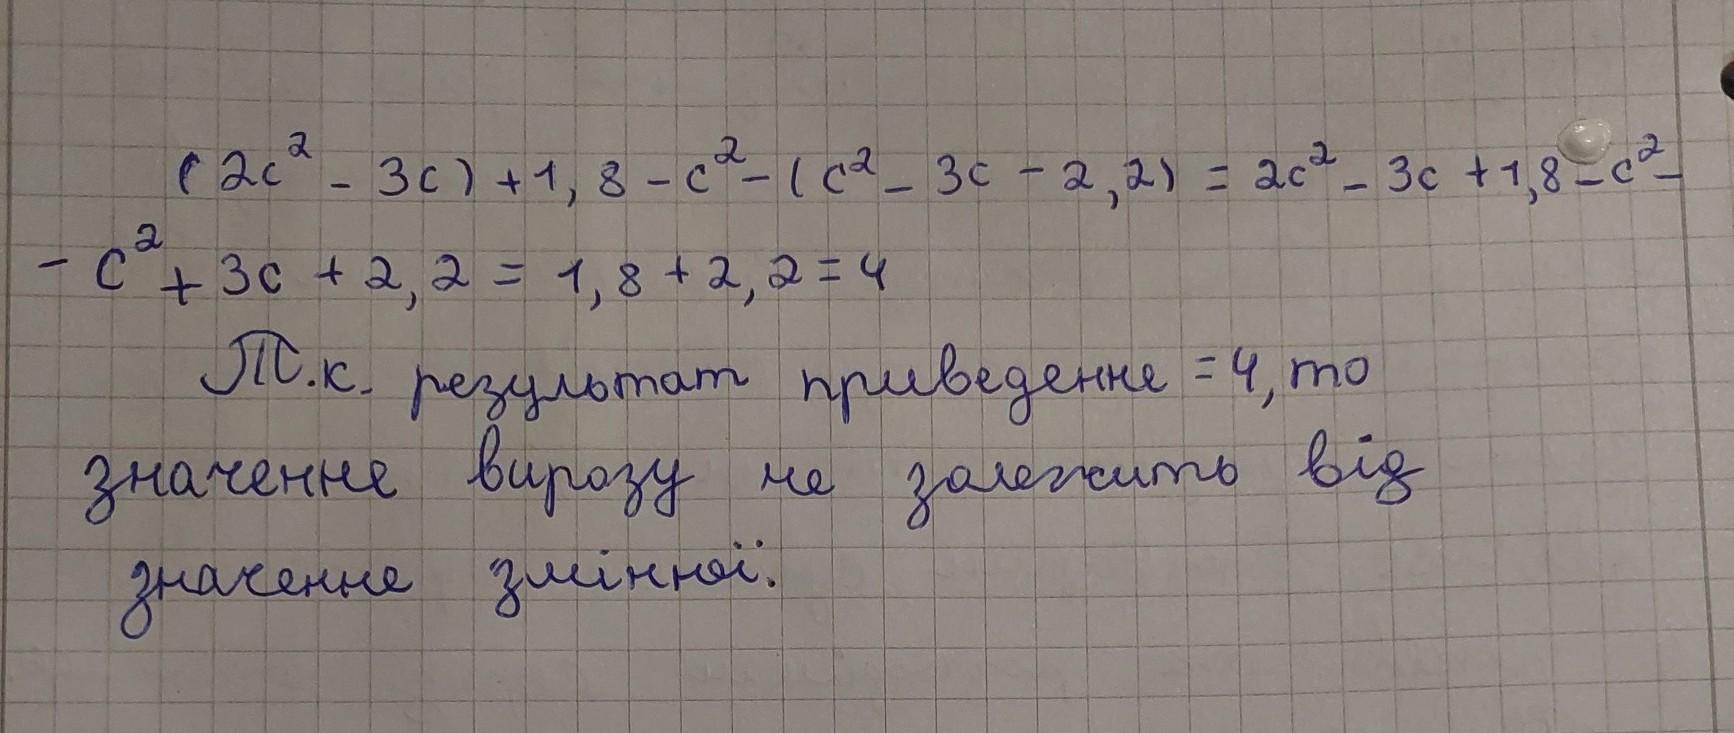 (2c² - 3c) + 1,8 - c² - (c² - 3c - 2,2) = 2c² - 3c + 1,8 - c² -
- c² + 3c + 2,2 = 1,8 + 2,2 = 4
Т.к. результат приведенне = 4, то
значенне виразу не залежить від
значенне змінної.